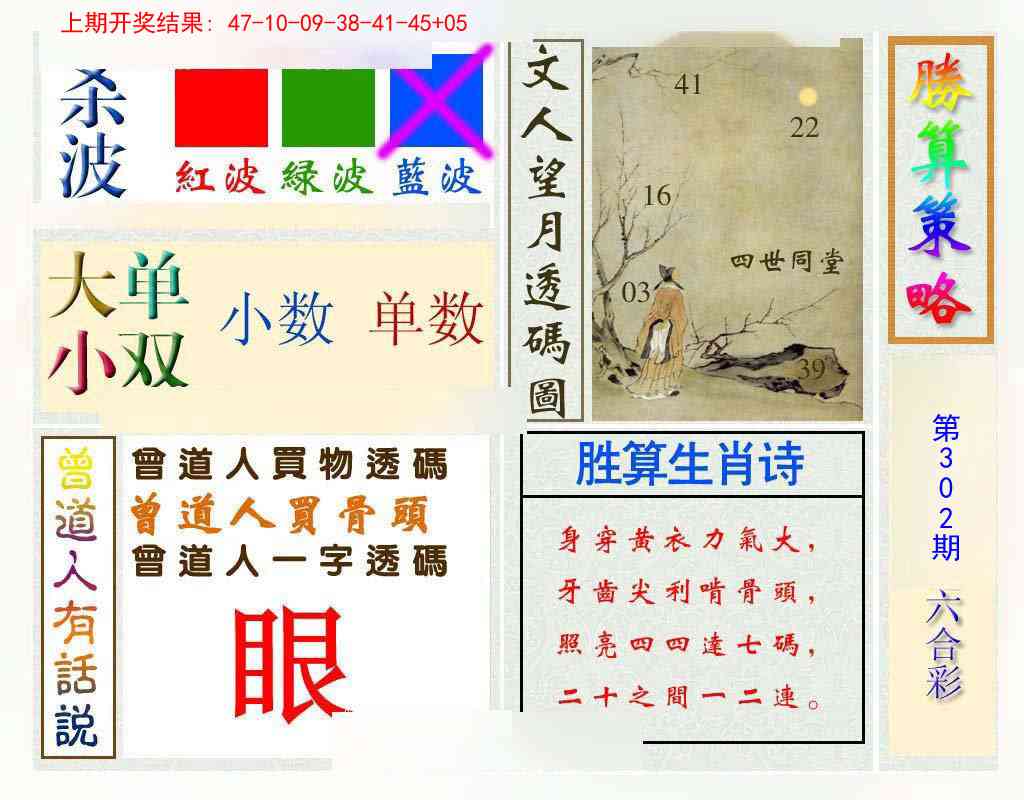 上期开奖结果: 47-10-09-38-41-45+05
杀波
紅波 綠波 藍波
大单小双
小数 单数
曾道人有話説
曾道人買物透碼
曾道人買骨頭
曾道人一字透碼
眼
文人望月透碼圖
41
22
16
四世同堂
03
39
胜算生肖诗
身穿黃衣力氣大，
牙齒尖利啃骨頭，
照亮四四達七碼，
二十之間一二連。
勝算策略
第302期
六合彩